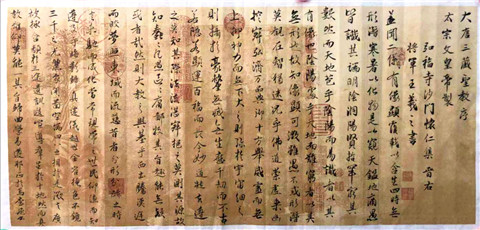 大唐三藏聖教序
太宗文皇帝製
弘福寺沙門懷仁集 晉右
將軍王羲之書
蓋聞二儀有像顯覆載以含生四時無
形潛寒暑以化物是以窺天鑑地庸愚
皆識其端明陰洞陽賢哲罕窮其
數然而天地苞乎陰陽而易識者以其
有像也陰陽處乎天地而難窮者以其
無形也故知像顯可徵雖愚不惑形潛
莫覩在智猶迷況乎佛道崇虛乘幽
控寂弘濟萬品典御十方舉威靈而無
上抑神力而無下大之則彌於宇宙細之
則攝於豪釐無滅無生歷千劫而不古
若隱若顯運百福而長今妙道凝玄遵
之莫知其際法流湛寂挹之莫測其源故
知蠢蠢凡愚區區庸鄙投其旨趣能無疑
或者哉然則大教之興基乎西土騰漢庭
而皎夢照東域而流慈昔者分形分跡之時
言未馳而成化當常現常之世民仰德而知
遵及乎晦影歸真遷儀越世金容掩色不鏡
三千之光麗象開圖空端四八之相於是微言廣
被拯含類於三途遺訓遐宣導群生於十地然而真
教難仰莫能一其旨歸曲學易遵邪正於焉紛糾